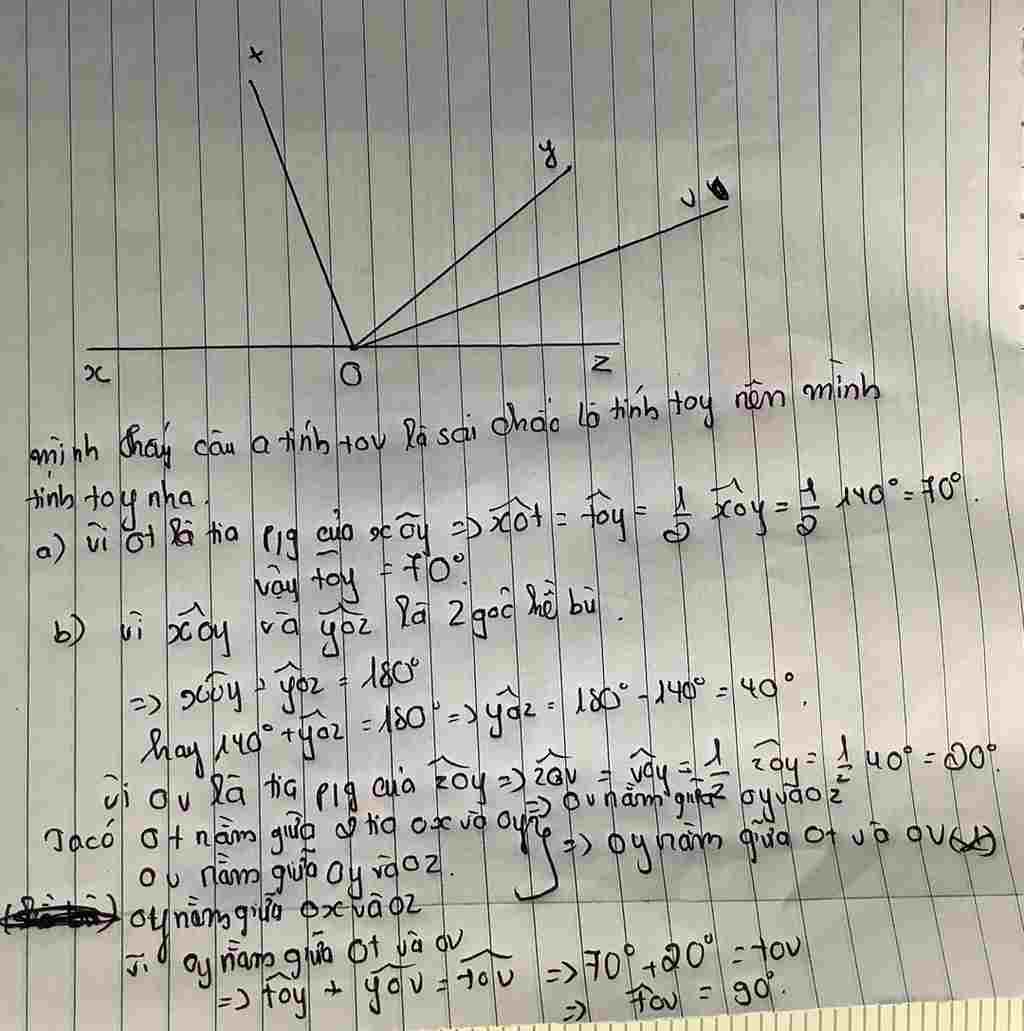 t
y
v
x
O
z
mình thấy câu a tính tov là sai chắc là tính toy nên mình
tính toy nha.
a) vì ot là tia p/g của xôy => xôt = tôy = 1/2 xôy = 1/2 140° = 70°.
vậy tôy = 70°.
b) vì xôy và yôz là 2 góc kề bù.
=> xôy + yôz = 180°
hay 140° + yôz = 180° => yôz = 180° - 140° = 40°.
vì ov là tia p/g của zôy => zôv = vôy = 1/2 zôy = 1/2 40° = 20°.
=> ov nằm giữa oy và oz
Ta có ot nằm giữa 2 tia ox và oy
ov nằm giữa oy và oz.
} => oy nằm giữa ot và ov
oy nằm giữa ox và oz
vì oy nằm giữa ot và ov
=> tôy + yôv = tôv => 70° + 20° = tov
=> tôv = 90°.